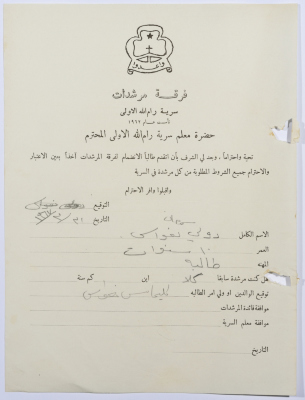 وأعدوا
فرقة مرشدات
سرية رام الله الاولى
تأسست عام ١٩٢٢
حضرة معلم سرية رام الله الاولى المحترم
تحية واحتراماً، وبعد لي الشرف بأن اتقدم طالباً الانضمام لفرقة المرشدات آخذاً بعين الاعتبار
والاحترام جميع الشروط المطلوبة من كل مرشدة في السرية
واقبلوا وافر الاحترام
التوقيع
التاريخ
الاسم الكامل
العمر سنوات
المهنه طالبة
هل كنت مرشدة سابقا كلا اين كم سنة
توقيع الوالدين او ولي امر الطالبه
موافقة قائدة المرشدات
موافقة معلم السرية
التاريخ